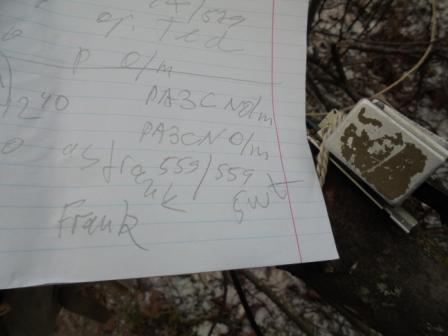 /579
op. Ted
P O/m
1240 PA3CNO/m
PA3CNO/m
0 as frank 559/559
Frank